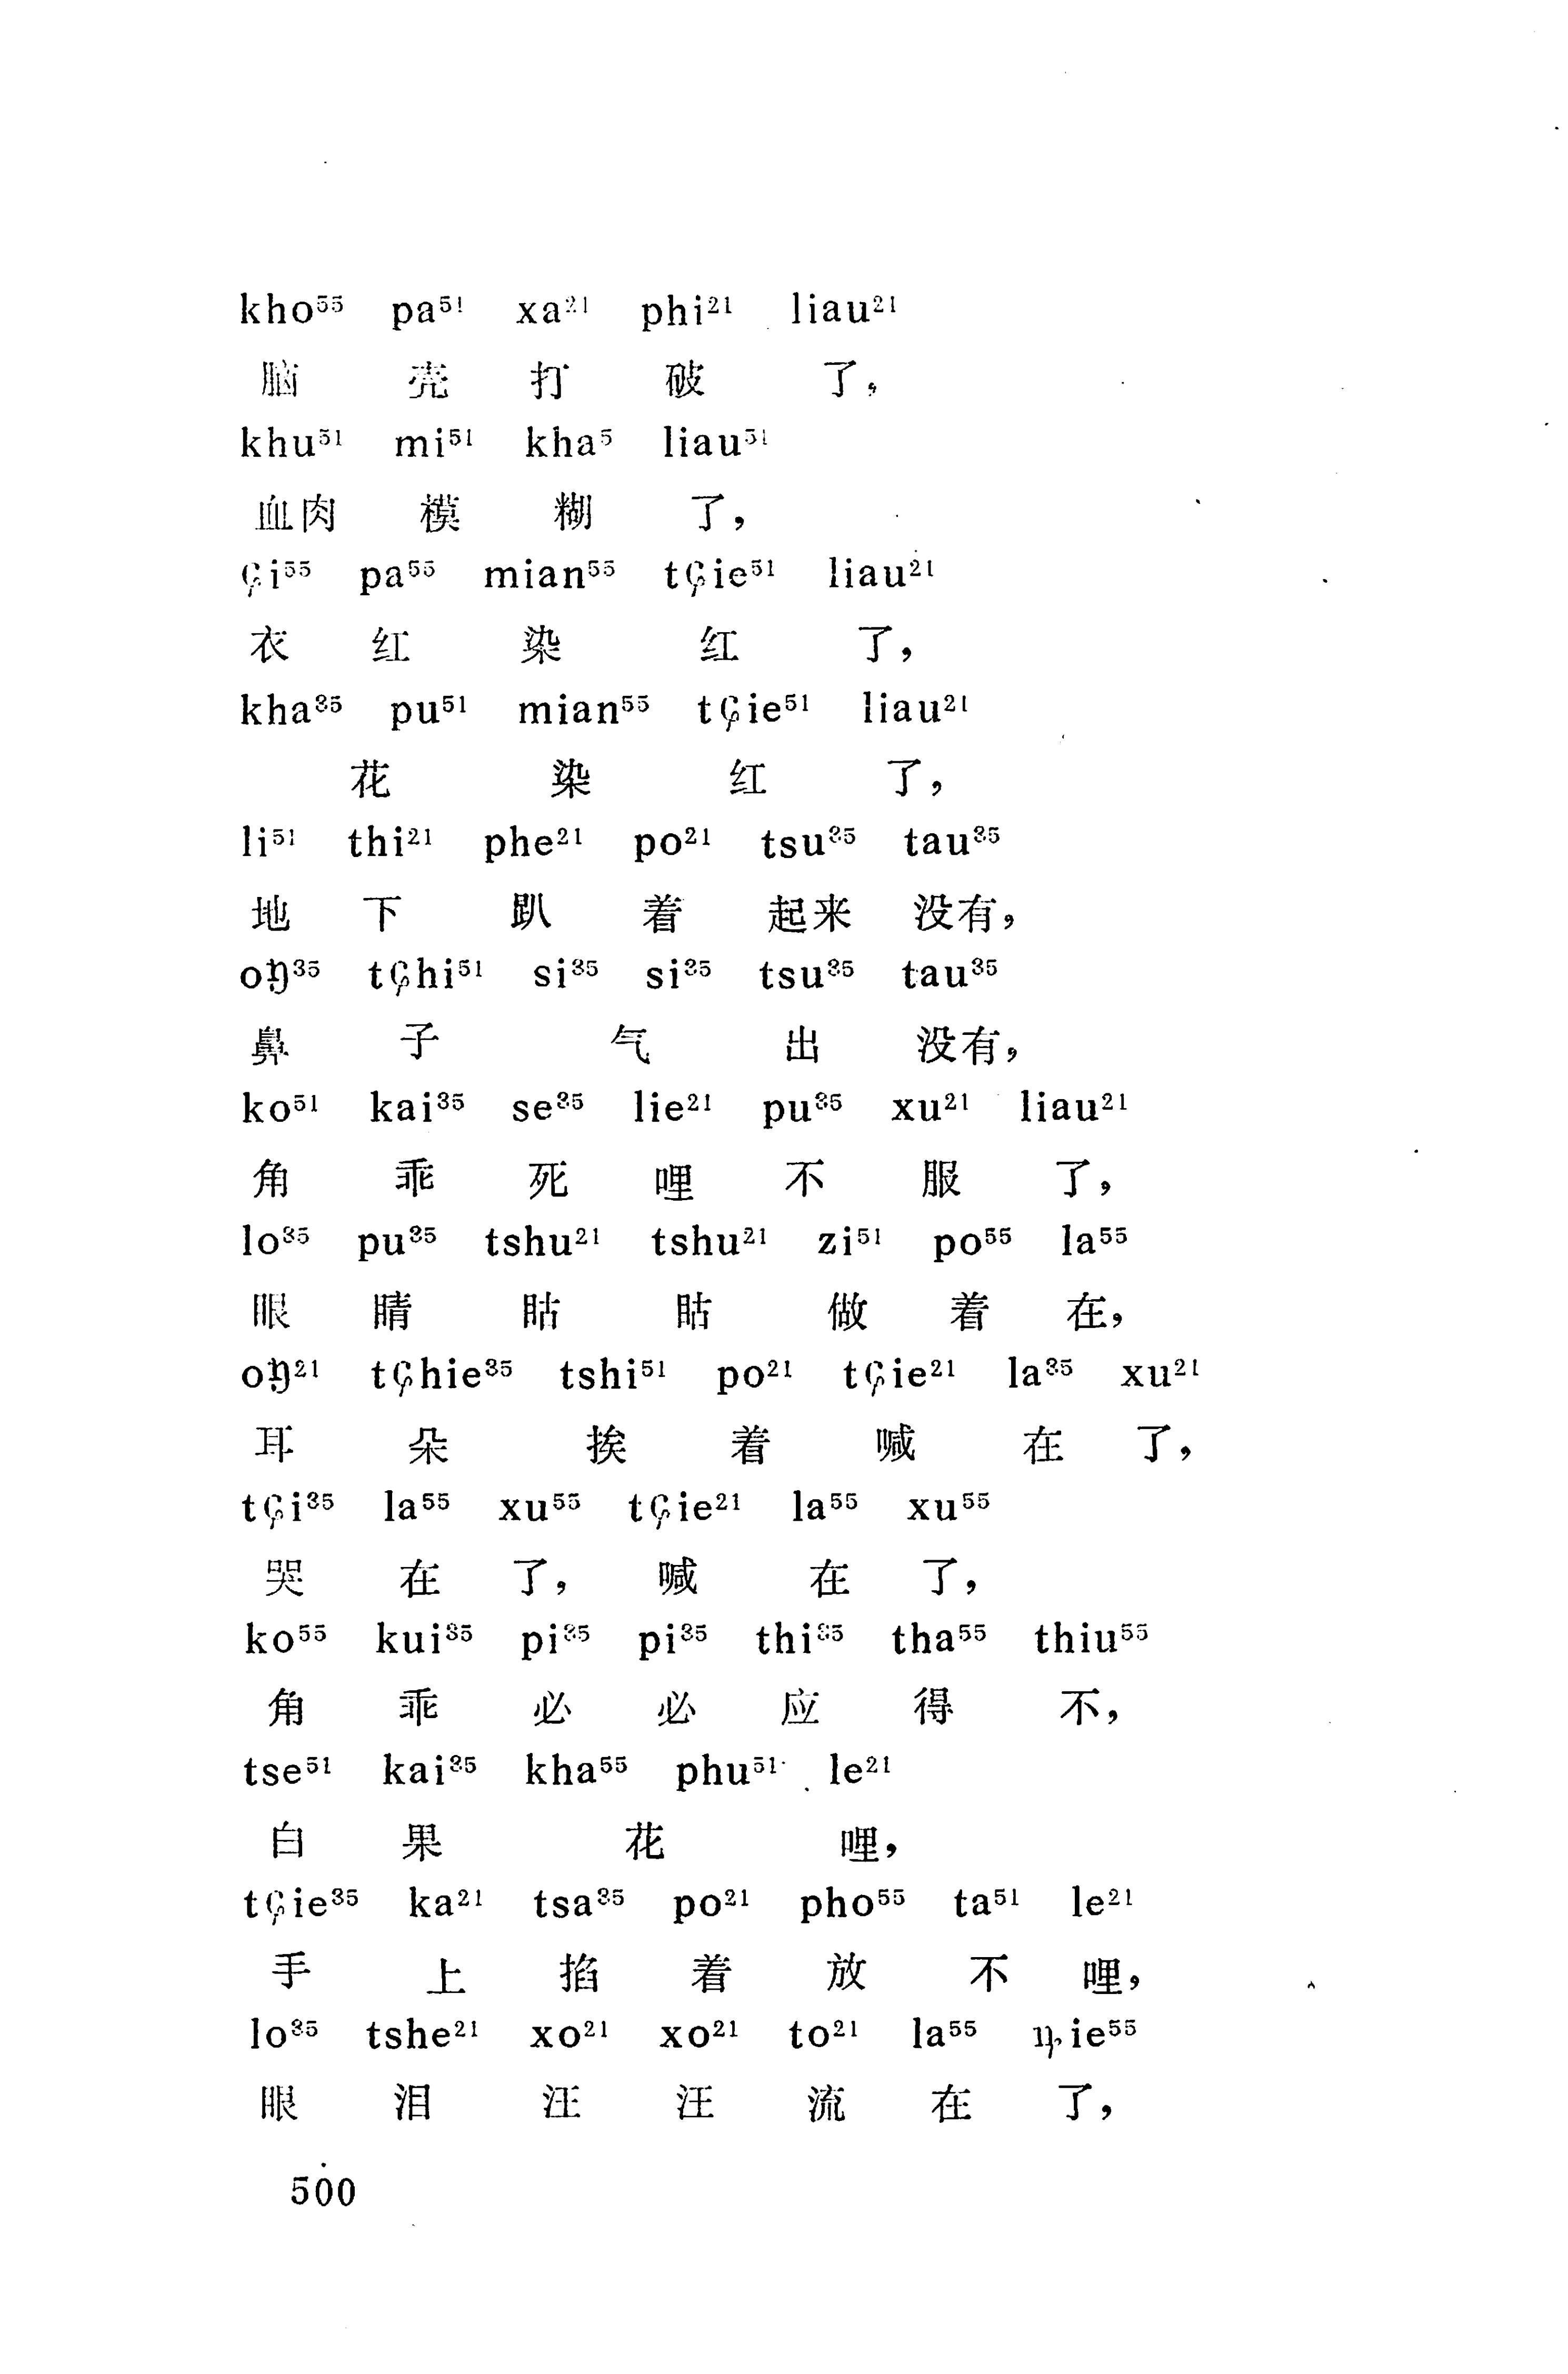 kho⁵⁵ pa⁵¹ xa²¹ phi²¹ liau²¹
脑 壳 打 破 了，
khu⁵¹ mi⁵¹ kha⁵ liau⁵¹
血肉 模 糊 了，
ɕi⁵⁵ pa⁵⁵ mian⁵⁵ tɕie⁵¹ liau²¹
衣 红 染 红 了，
kha³⁵ pu⁵¹ mian⁵⁵ tɕie⁵¹ liau²¹
花 染 红 了，
li⁵¹ thi²¹ phe²¹ po²¹ tsu³⁵ tau³⁵
地 下 趴 着 起来 没有，
oŋ³⁵ tɕhi⁵¹ si³⁵ si³⁵ tsu³⁵ tau³⁵
鼻 子 气 出 没有，
ko⁵¹ kai³⁵ se³⁵ lie²¹ pu³⁵ xu²¹ liau²¹
角 乖 死 哩 不 服 了，
lo³⁵ pu³⁵ tshu²¹ tshu²¹ zi⁵¹ po⁵⁵ la⁵⁵
眼 睛 䀦 䀦 做 着 在，
oŋ²¹ tɕhie³⁵ tshi⁵¹ po²¹ tɕie²¹ la³⁵ xu²¹
耳 朵 挨 着 喊 在 了，
tɕi³⁵ la⁵⁵ xu⁵⁵ tɕie²¹ la⁵⁵ xu⁵⁵
哭 在 了， 喊 在 了，
ko⁵⁵ kui³⁵ pi³⁵ pi³⁵ thi³⁵ tha⁵⁵ thiu⁵⁵
角 乖 必 必 应 得 不，
tse⁵¹ kai³⁵ kha⁵⁵ phu⁵¹ le²¹
白 果 花 哩，
tɕie³⁵ ka²¹ tsa³⁵ po²¹ pho⁵⁵ ta⁵¹ le²¹
手 上 掐 着 放 不 哩，
lo³⁵ tshe²¹ xo²¹ xo²¹ to²¹ la⁵⁵ ȵie⁵⁵
眼 泪 汪 汪 流 在 了，
500